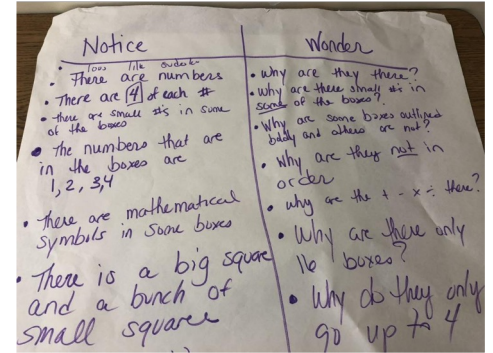 Notice
like sudoku
There are numbers
• There are 4 of each #
• there are small #s in some
of the boxes
• The numbers that are
in the boxes are
1, 2, 3, 4
• There are mathematical
symbols in some boxes
• There is a big square
and a bunch of
small square
Wonder
• Why are they there?
• Why are there small #s in
some of the boxes?
• Why are some boxes outlined
boldly and others are not?
• Why are they not in
order
• why are the + - x ÷ there?
• Why are there only
16 boxes?
• Why do they only
go up to 4